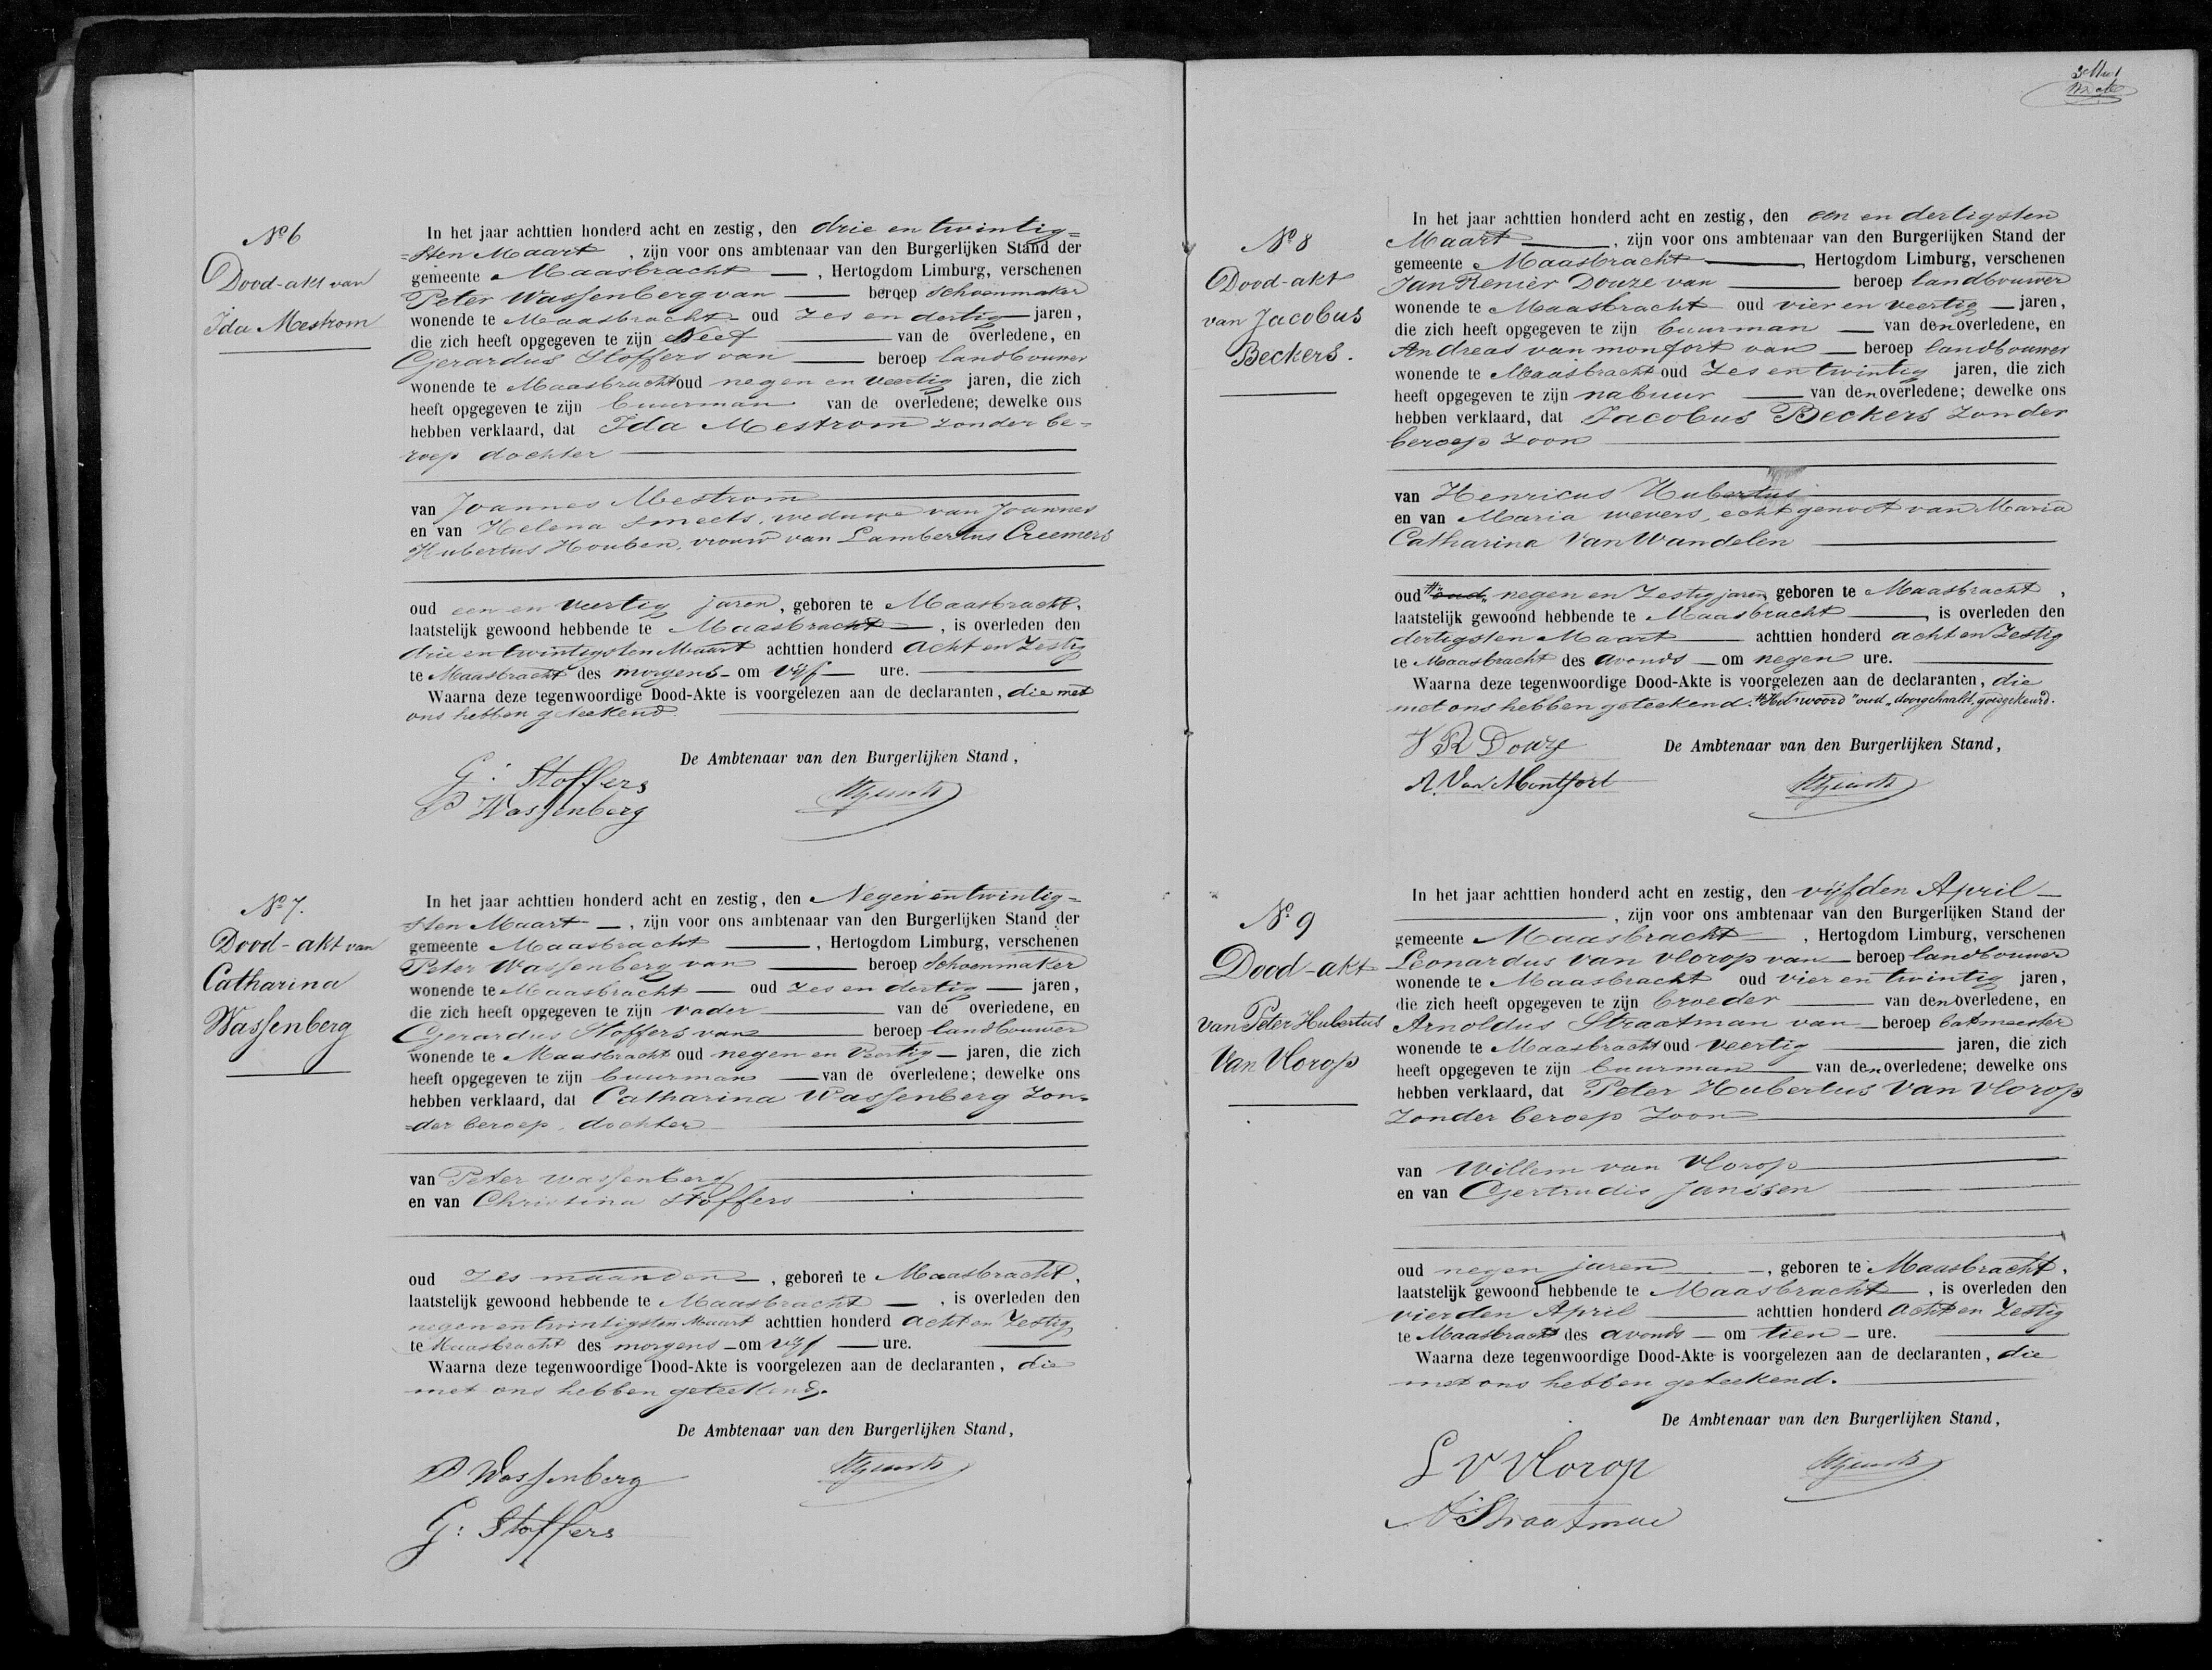 Nº 6
Dood-akt van
Ida Mestrom
In het jaar achttien honderd acht en zestig, den drie en twintig=
=sten Maart, zijn voor ons ambtenaar van den Burgerlijken Stand der
gemeente Maasbracht, Hertogdom Limburg, verschenen
Peter Wassenberg van beroep Schoenmaker
wonende te Maasbracht oud Zes en dertig jaren,
die zich heeft opgegeven te zijn Neef van de overledene, en
Gerardus Stoffers van beroep landbouwer
wonende te Maasbracht oud negen en veertig jaren, die zich
heeft opgegeven te zijn buurman van de overledene; dewelke ons
hebben verklaard, dat Ida Mestrom zonder be=
roep dochter
van Joannes Mestrom
en van Helena Smeets, weduwe van Joannes
Hubertus Houben, vrouw van Lambertus Creemers
oud een en veertig jaren, geboren te Maasbracht,
laatstelijk gewoond hebbende te Maasbracht, is overleden den
drie en twintigsten Maart achttien honderd acht en Zestig
te Maasbracht des morgens om vijf ure.
Waarna deze tegenwoordige Dood-Akte is voorgelezen aan de declaranten, die met
ons hebben geteekend.
De Ambtenaar van den Burgerlijken Stand,
G: Stoffers
P Wassenberg
Nº 7.
Dood-akt van
Catharina
Wassenberg
In het jaar achttien honderd acht en zestig, den Negen en twintig=
sten Maart, zijn voor ons ambtenaar van den Burgerlijken Stand der
gemeente Maasbracht, Hertogdom Limburg, verschenen
Peter Wassenberg van beroep Schoenmaker
wonende te Maasbracht oud Zes en dertig jaren,
die zich heeft opgegeven te zijn vader van de overledene, en
Gerardus Stoffers van beroep landbouwer
wonende te Maasbracht oud negen en Veertig jaren, die zich
heeft opgegeven te zijn buurman van de overledene; dewelke ons
hebben verklaard, dat Catharina Wassenberg Zon=
=der beroep, dochter
van Peter Wassenberg
en van Christina Stoffers
oud Zes maanden, geboren te Maasbracht,
laatstelijk gewoond hebbende te Maasbracht, is overleden den
negen en twintigsten Maart achttien honderd acht en Zestig
te Maasbracht des morgens om vijf ure.
Waarna deze tegenwoordige Dood-Akte is voorgelezen aan de declaranten, die
met ons hebben geteekend.
De Ambtenaar van den Burgerlijken Stand,
P Wassenberg
G: Stoffers
Nº 8
Dood-akt
van Jacobus
Beckers.
In het jaar achttien honderd acht en zestig, den een en dertigsten
Maart, zijn voor ons ambtenaar van den Burgerlijken Stand der
gemeente Maasbracht, Hertogdom Limburg, verschenen
Jan Renier Douze van beroep landbouwer
wonende te Maasbracht oud vier en veertig jaren,
die zich heeft opgegeven te zijn buurman van den overledene, en
Andreas van monfort van beroep landbouwer
wonende te Maasbracht oud Zes en twintig jaren, die zich
heeft opgegeven te zijn nabuur van den overledene; dewelke ons
hebben verklaard, dat Jacobus Beckers zonder
beroep zoon
van Henricus Hubertus
en van Maria wevers, echtgenoot van Maria
Catharina Van Wandelen
oud # "oud" negen en Zestig jaren, geboren te Maasbracht,
laatstelijk gewoond hebbende te Maasbracht, is overleden den
dertigsten Maart achttien honderd acht en Zestig
te Maasbracht des avonds om negen ure.
Waarna deze tegenwoordige Dood-Akte is voorgelezen aan de declaranten, die
met ons hebben geteekend. # Het woord "oud" doorgehaald, goedgekeurd.
J R Douze
De Ambtenaar van den Burgerlijken Stand,
A. Van Montfort
Nº 9
Dood-akt
van Peter Hubertus
Van Vlorop
In het jaar achttien honderd acht en zestig, den vijfden April
, zijn voor ons ambtenaar van den Burgerlijken Stand der
gemeente Maasbracht, Hertogdom Limburg, verschenen
Leonardus van Vlorop van beroep landbouwer
wonende te Maasbracht oud vier en twintig jaren,
die zich heeft opgegeven te zijn broeder van den overledene, en
Arnoldus Straatman van beroep
wonende te Maasbracht oud veertig jaren, die zich
heeft opgegeven te zijn buurman van den overledene; dewelke ons
hebben verklaard, dat Peter Hubertus Van Vlorop
Zonder beroep Zoon
van Willem van Vlorop
en van Gertrudis Janssen
oud negen jaren, geboren te Maasbracht,
laatstelijk gewoond hebbende te Maasbracht, is overleden den
vierden April achttien honderd acht en Zestig
te Maasbracht des avonds om tien ure.
Waarna deze tegenwoordige Dood-Akte is voorgelezen aan de declaranten, die
met ons hebben geteekend.
De Ambtenaar van den Burgerlijken Stand,
L V Vlorop
A Straatman